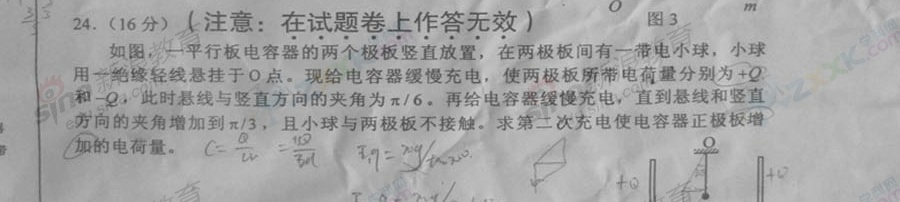 O
m
24.（16分）（注意：在试题卷上作答无效）
图3
如图，一平行板电容器的两个极板竖直放置，在两极板间有一带电小球，小球
用一绝缘轻线悬挂于O点。现给电容器缓慢充电，使两极板所带电荷量分别为+Q
和-Q，此时悬线与竖直方向的夹角为π/6。再给电容器缓慢充电，直到悬线和竖直
方向的夹角增加到π/3，且小球与两极板不接触。求第二次充电使电容器正极板增
加的电荷量。
O
+Q
+Q